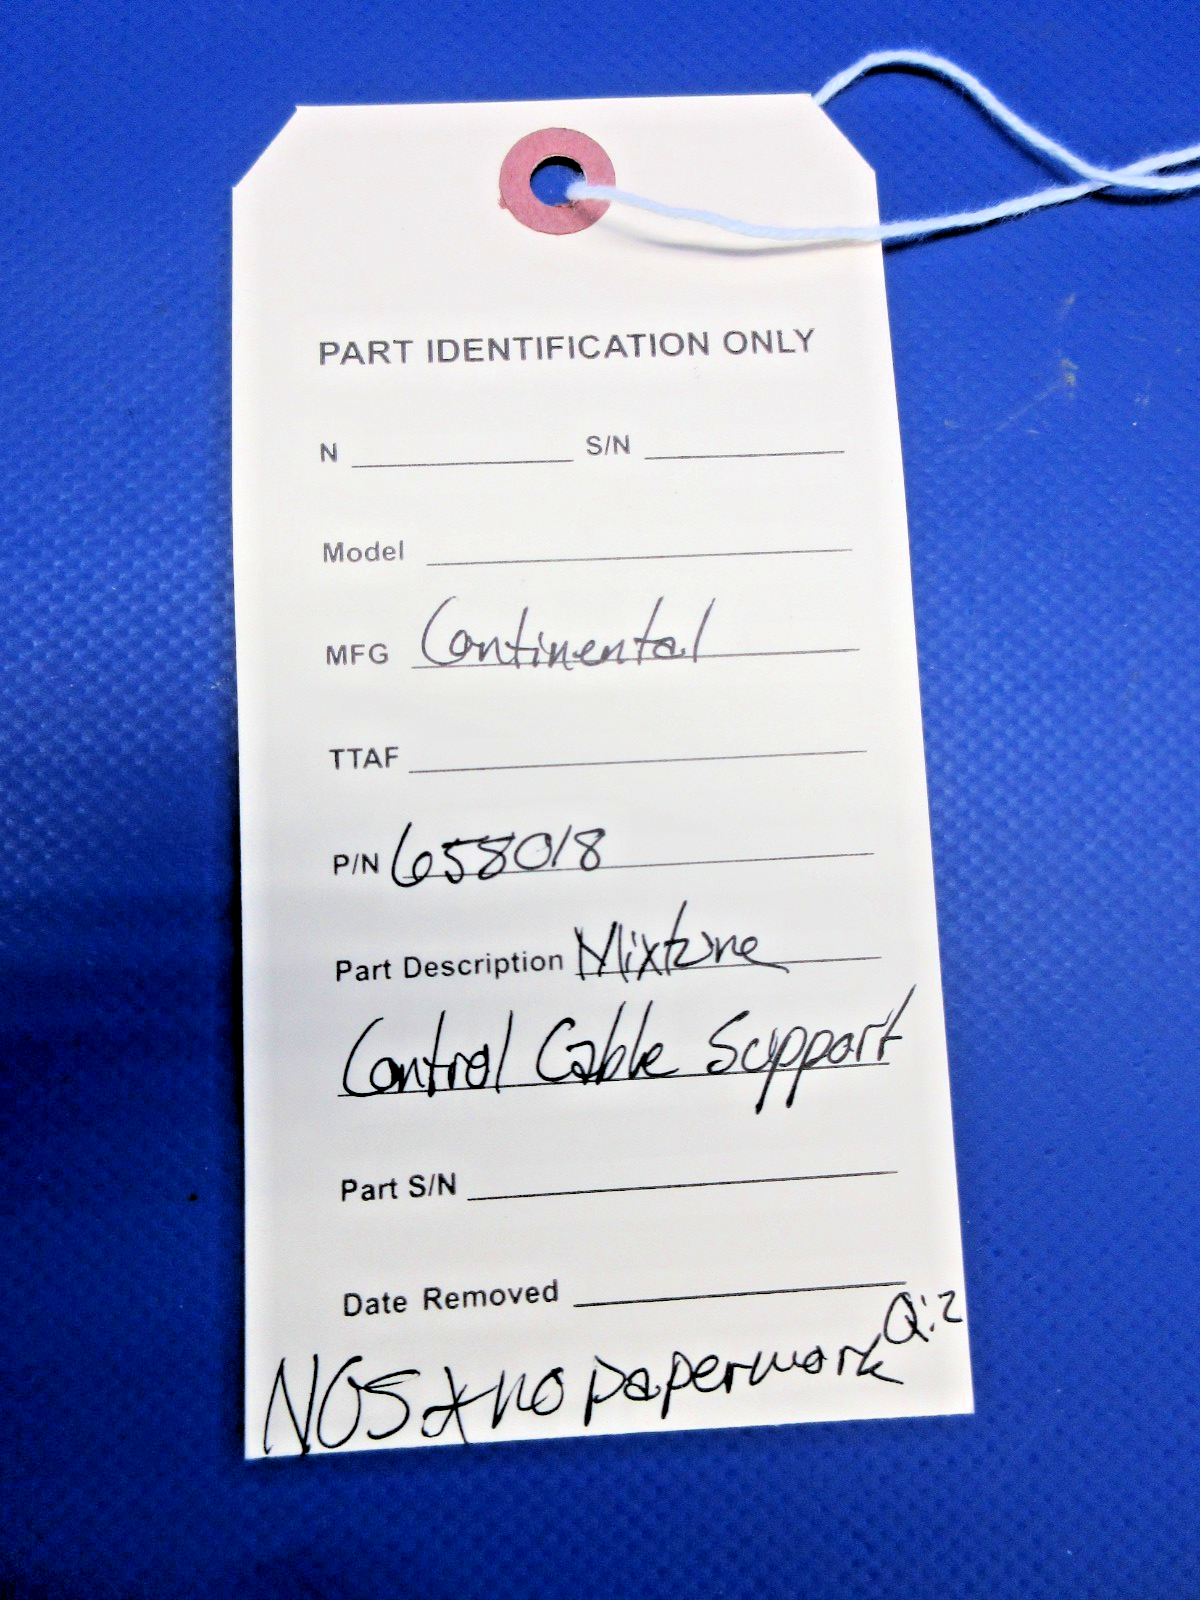 PART IDENTIFICATION ONLY
N ____________ S/N ____________
Model ____________
MFG Continental
TTAF ____________
P/N 658018
Part Description Mixture
Control Cable Support
Part S/N ____________
Date Removed ____________
NOS * no paperwork Q:2